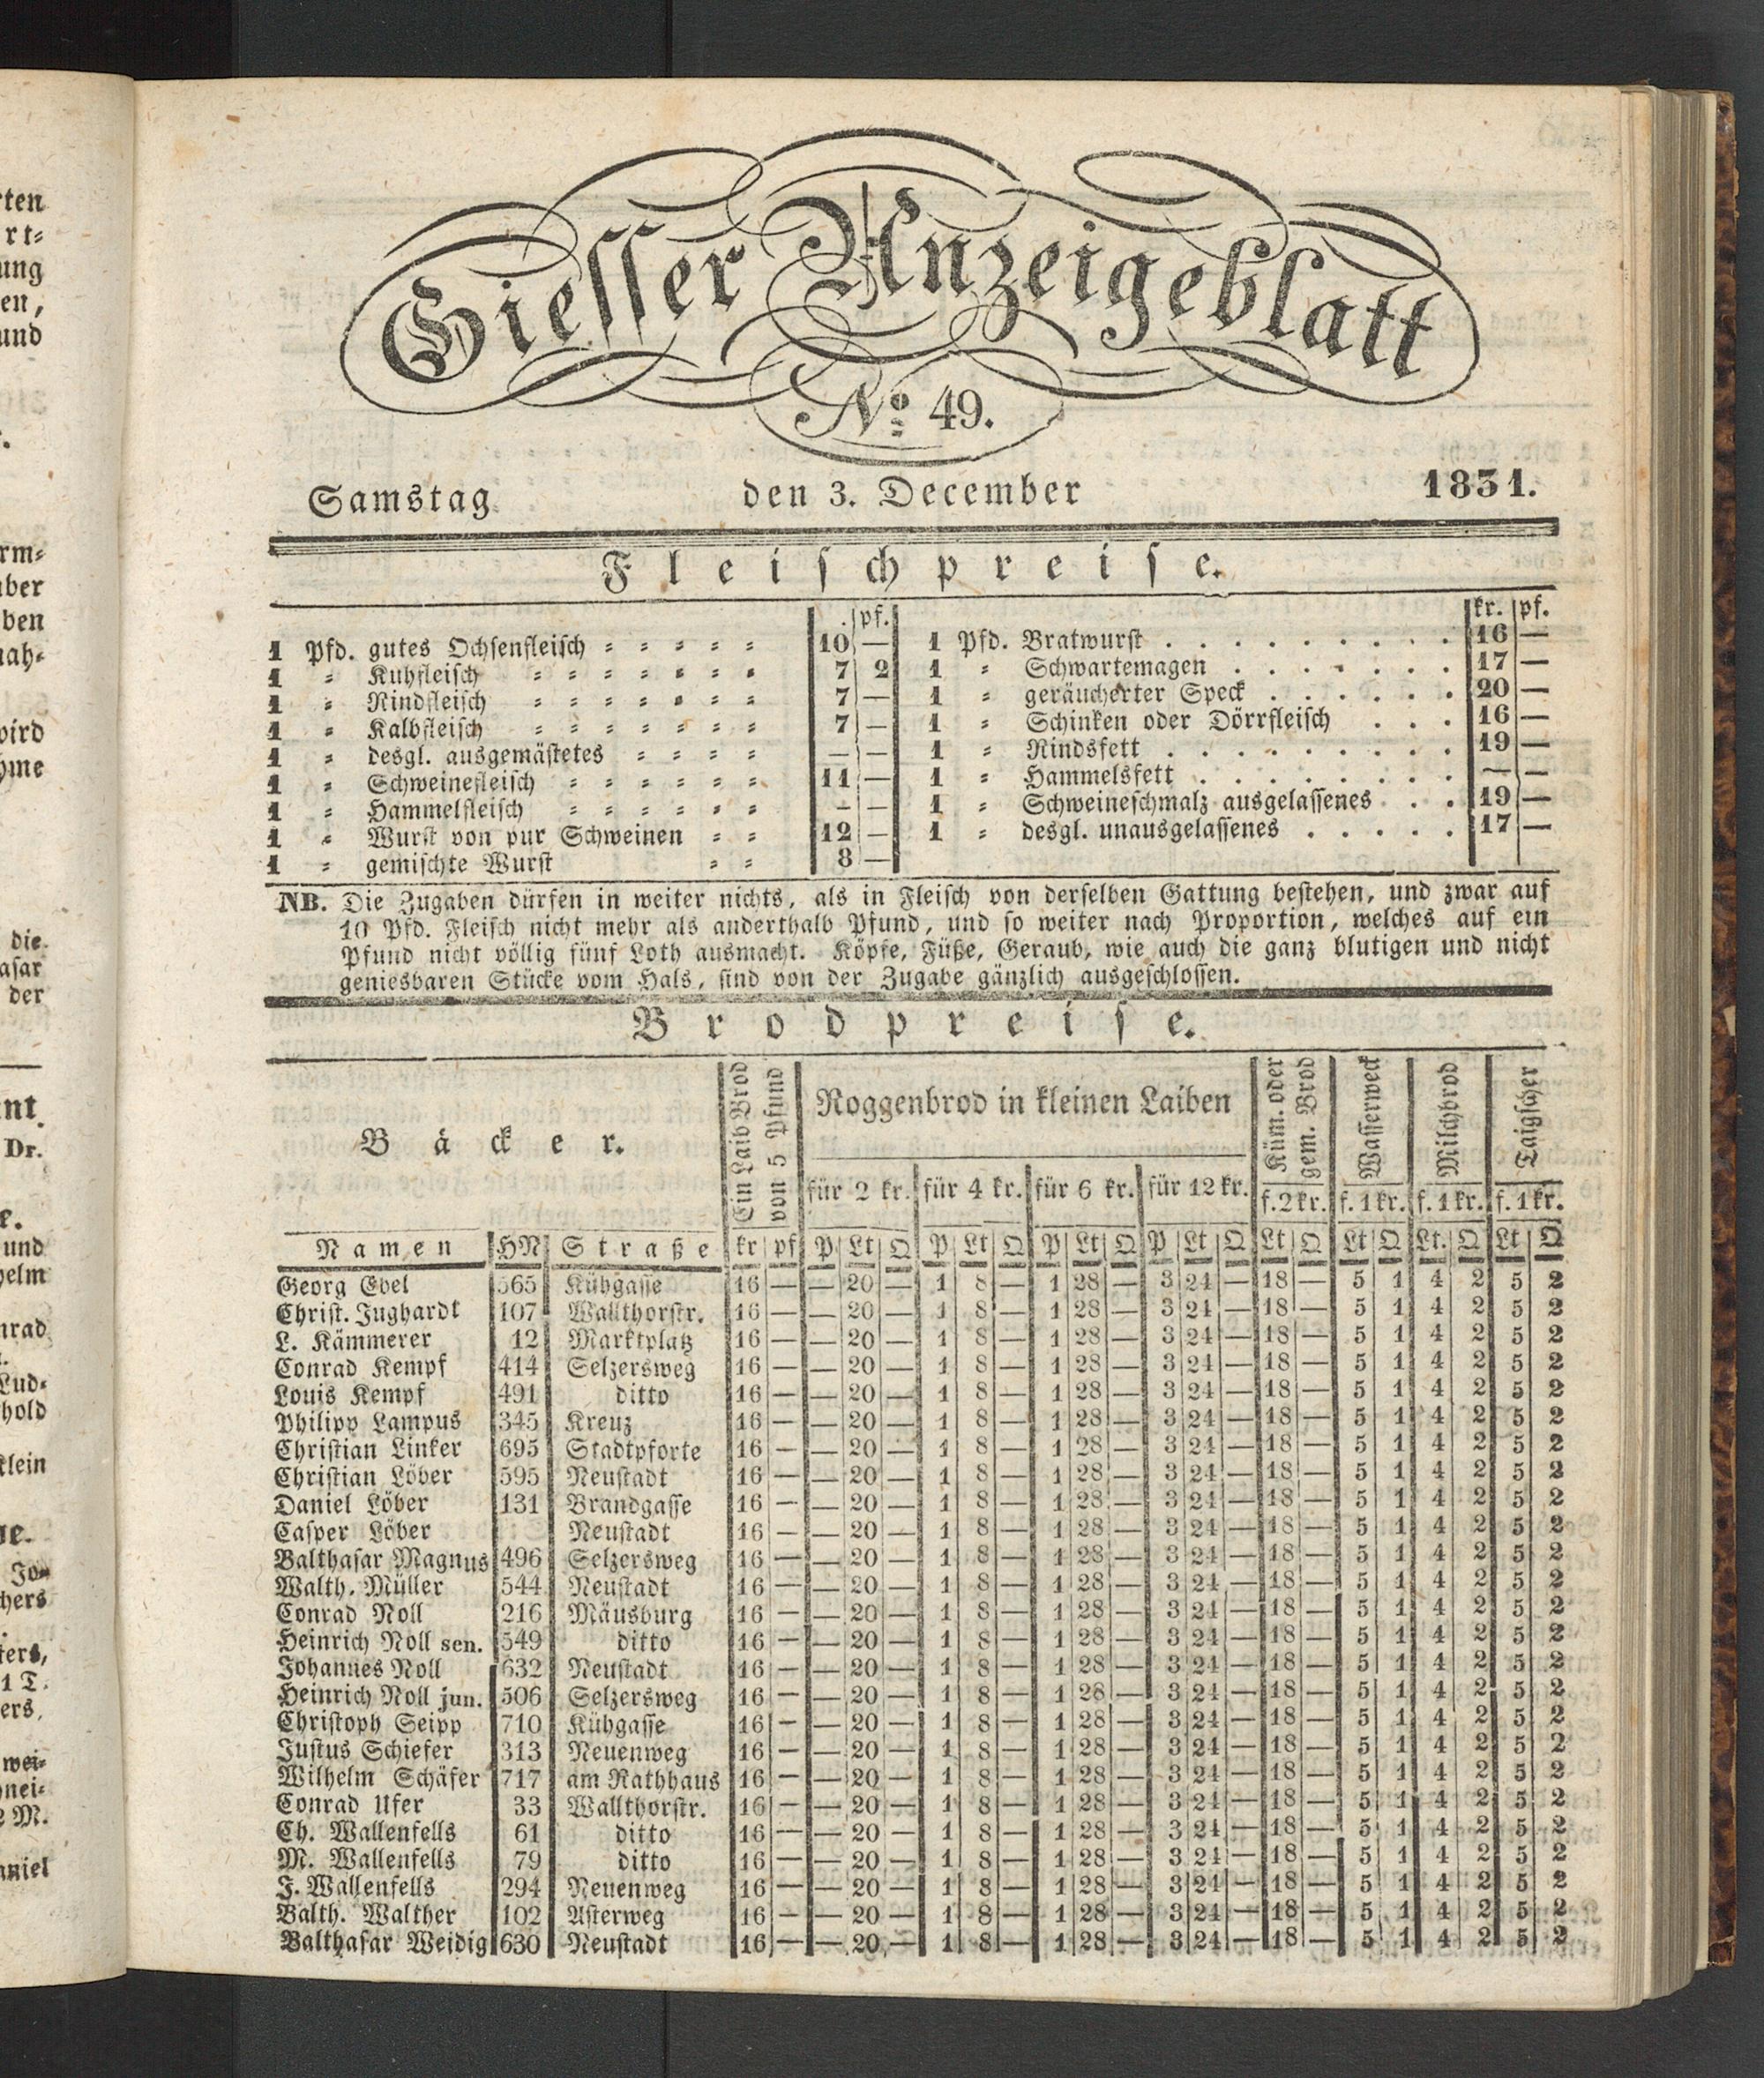 Giesser Anzeigeblatt
No. 49.
Samstag den 3. December 1831.
Fleischpreise.
. pf. kr. pf.
1 Pfd. gutes Ochsenfleisch = = = = = 10 — 1 Pfd. Bratwurst . . . . . . . . . 16 —
1 = Kuhfleisch = = = = = = = 7 2 1 = Schwartemagen . . . . . . . 17 —
1 = Rindfleisch = = = = = = = 7 — 1 = geräucherter Speck . . . . . . 20 —
1 = Kalbfleisch = = = = = = = 7 — 1 = Schinken oder Dörrfleisch . . . 16 —
1 = desgl. ausgemästetes = = = = — — 1 = Rindsfett . . . . . . . . . 19 —
1 = Schweinefleisch = = = = = = 11 — 1 = Hammelsfett . . . . . . . . — —
1 = Hammelfleisch = = = = = = — — 1 = Schweineschmalz ausgelassenes . . 19 —
1 = Wurst von pur Schweinen = = 12 — 1 = desgl. unausgelassenes . . . . . 17 —
1 = gemischte Wurst = = 8 —
NB. Die Zugaben dürfen in weiter nichts, als in Fleisch von derselben Gattung bestehen, und zwar auf
10 Pfd. Fleisch nicht mehr als anderthalb Pfund, und so weiter nach Proportion, welches auf ein
Pfund nicht völlig fünf Loth ausmacht. Köpfe, Füße, Geraub, wie auch die ganz blutigen und nicht
geniesbaren Stücke vom Hals, sind von der Zugabe gänzlich ausgeschlossen.
Brodpreise.
Bäcker.
Ein Laib Brod
von 5 Pfund
Roggenbrod in kleinen Laiben
Küm. oder
gem. Brod
Wasserweck
Milchbrod
Taigscher
für 2 kr. für 4 kr. für 6 kr. für 12 kr. f. 2 kr. f. 1 kr. f. 1 kr. f. 1 kr.
Namen HN Straße kr pf P Lt Q P Lt Q P Lt Q P Lt Q Lt Q Lt Q Lt. Q Lt Q
Georg Ebel 565 Kühgasse 16 — — 20 — 1 8 — 1 28 — 3 24 — 18 — 5 1 4 2 5 2
Christ. Jughardt 107 Wallthorstr. 16 — — 20 — 1 8 — 1 28 — 3 24 — 18 — 5 1 4 2 5 2
L. Kämmerer 12 Marktplatz 16 — — 20 — 1 8 — 1 28 — 3 24 — 18 — 5 1 4 2 5 2
Conrad Kempf 414 Selzersweg 16 — — 20 — 1 8 — 1 28 — 3 24 — 18 — 5 1 4 2 5 2
Louis Kempf 491 ditto 16 — — 20 — 1 8 — 1 28 — 3 24 — 18 — 5 1 4 2 5 2
Philipp Lampus 345 Kreuz 16 — — 20 — 1 8 — 1 28 — 3 24 — 18 — 5 1 4 2 5 2
Christian Linker 695 Stadtpforte 16 — — 20 — 1 8 — 1 28 — 3 24 — 18 — 5 1 4 2 5 2
Christian Löber 595 Neustadt 16 — — 20 — 1 8 — 1 28 — 3 24 — 18 — 5 1 4 2 5 2
Daniel Löber 131 Brandgasse 16 — — 20 — 1 8 — 1 28 — 3 24 — 18 — 5 1 4 2 5 2
Casper Löber Neustadt 16 — — 20 — 1 8 — 1 28 — 3 24 — 18 — 5 1 4 2 5 2
Balthasar Magnus 496 Selzersweg 16 — — 20 — 1 8 — 1 28 — 3 24 — 18 — 5 1 4 2 5 2
Walth. Müller 544 Neustadt 16 — — 20 — 1 8 — 1 28 — 3 24 — 18 — 5 1 4 2 5 2
Conrad Noll 216 Mäusburg 16 — — 20 — 1 8 — 1 28 — 3 24 — 18 — 5 1 4 2 5 2
Heinrich Noll sen. 549 ditto 16 — — 20 — 1 8 — 1 28 — 3 24 — 18 — 5 1 4 2 5 2
Johannes Noll 632 Neustadt 16 — — 20 — 1 8 — 1 28 — 3 24 — 18 — 5 1 4 2 5 2
Heinrich Noll jun. 506 Selzersweg 16 — — 20 — 1 8 — 1 28 — 3 24 — 18 — 5 1 4 2 5 2
Christoph Seipp 710 Kühgasse 16 — — 20 — 1 8 — 1 28 — 3 24 — 18 — 5 1 4 2 5 2
Justus Schiefer 313 Neuenweg 16 — — 20 — 1 8 — 1 28 — 3 24 — 18 — 5 1 4 2 5 2
Wilhelm Schäfer 717 am Rathhaus 16 — — 20 — 1 8 — 1 28 — 3 24 — 18 — 5 1 4 2 5 2
Conrad Ufer 33 Wallthorstr. 16 — — 20 — 1 8 — 1 28 — 3 24 — 18 — 5 1 4 2 5 2
Ch. Wallenfells 61 ditto 16 — — 20 — 1 8 — 1 28 — 3 24 — 18 — 5 1 4 2 5 2
M. Wallenfells 79 ditto 16 — — 20 — 1 8 — 1 28 — 3 24 — 18 — 5 1 4 2 5 2
J. Wallenfells 294 Neuenweg 16 — — 20 — 1 8 — 1 28 — 3 24 — 18 — 5 1 4 2 5 2
Balth. Walther 102 Asterweg 16 — — 20 — 1 8 — 1 28 — 3 24 — 18 — 5 1 4 2 5 2
Balthasar Weidig 630 Neustadt 16 — — 20 — 1 8 — 1 28 — 3 24 — 18 — 5 1 4 2 5 2